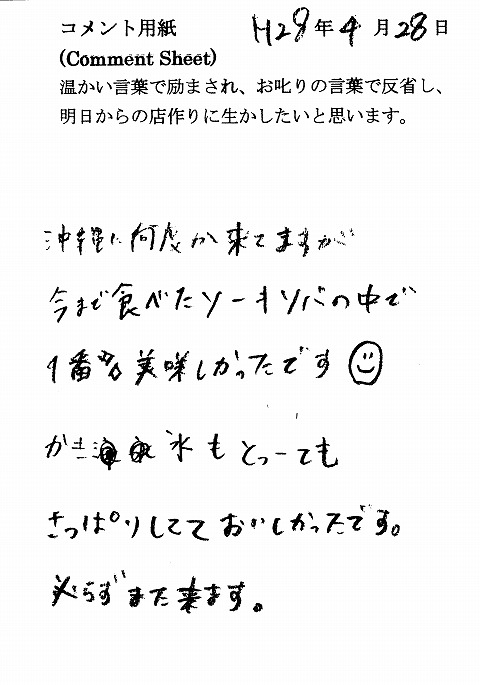 コメント用紙 H29年4月28日
(Comment Sheet)
温かい言葉で励まされ、お叱りの言葉で反省し、
明日からの店作りに生かしたいと思います。
沖縄に何度か来てますが
今まで食べたソーキソバの中で
1番美味しかったです
かき氷もとっても
さっぱりしてておいしかったです。
必らずまた来ます。